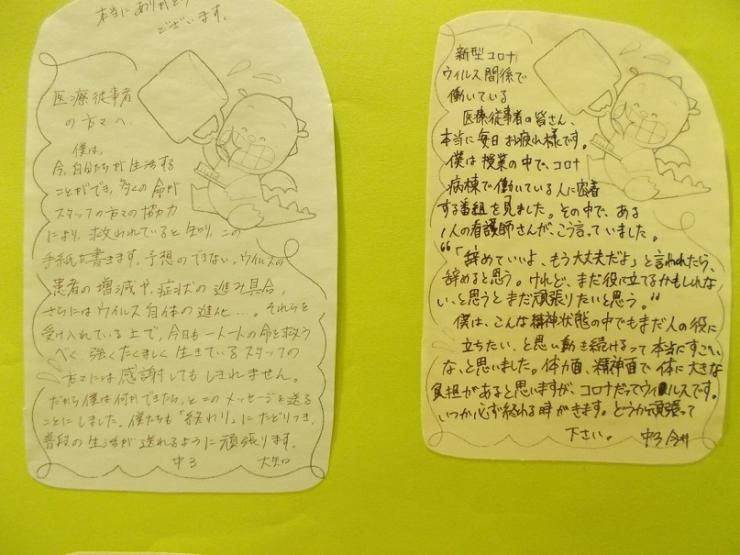 本当にありがとう
ございます。
医療従事者
の方々へ
僕は、
今、自分たちが生活する
ことができ、多くの命が
スタッフの方々の協力
により、救われていると知り、この
手紙を書きます。予想のできないウイルスの
患者の増減や、症状の進み具合、
さらにはウイルス自体の進化…。それらを
受け入れている上で、今日も一人一人の命を救う
べく強くたくましく生きているスタッフの
方々には感謝してもしきれません。
だから僕は何かできたら、とこのメッセージを送る
ことにしました。僕たちも「終わり」にたどりつき、
普段の生活が送れるように頑張ります。
中3 大知
新型コロナ
ウイルス関係で
働いている
医療従事者の皆さん、
本当に毎日お疲れ様です。
僕は授業の中で、コロナ
病棟で働いている人に密着
する番組を見ました。その中で、ある
1人の看護師さんが、こう言っていました。
“「辞めていいよ、もう大丈夫だよ」と言われたら、
辞めると思う。けれど、まだ役に立てるかもしれな
い、と思うとまだ頑張りたいと思う。”
僕は、こんな精神状態の中でもまだ人の役に
立ちたい、と思い動き続けるって本当にすごい
な、と思いました。体力面、精神面で体に大きな
負担があると思いますが、コロナだってウイルスです。
いつか必ず終わる時がきます。どうか頑張って
下さい。 中3